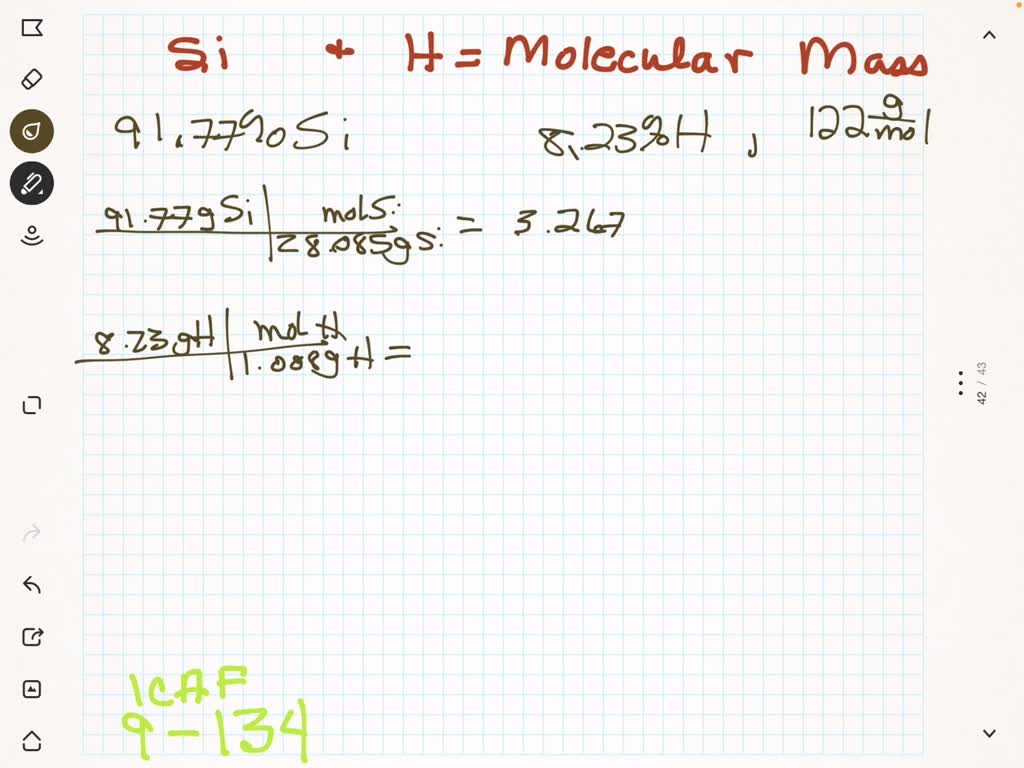 Si + H = Molecular Mass
91.77% Si 8.23% H , 122 g/mol
91.77g Si | mol Si / 28.085g Si = 3.267
8.23 g H | mol H / 1.008g H =
42 / 43
ICAF
9-134